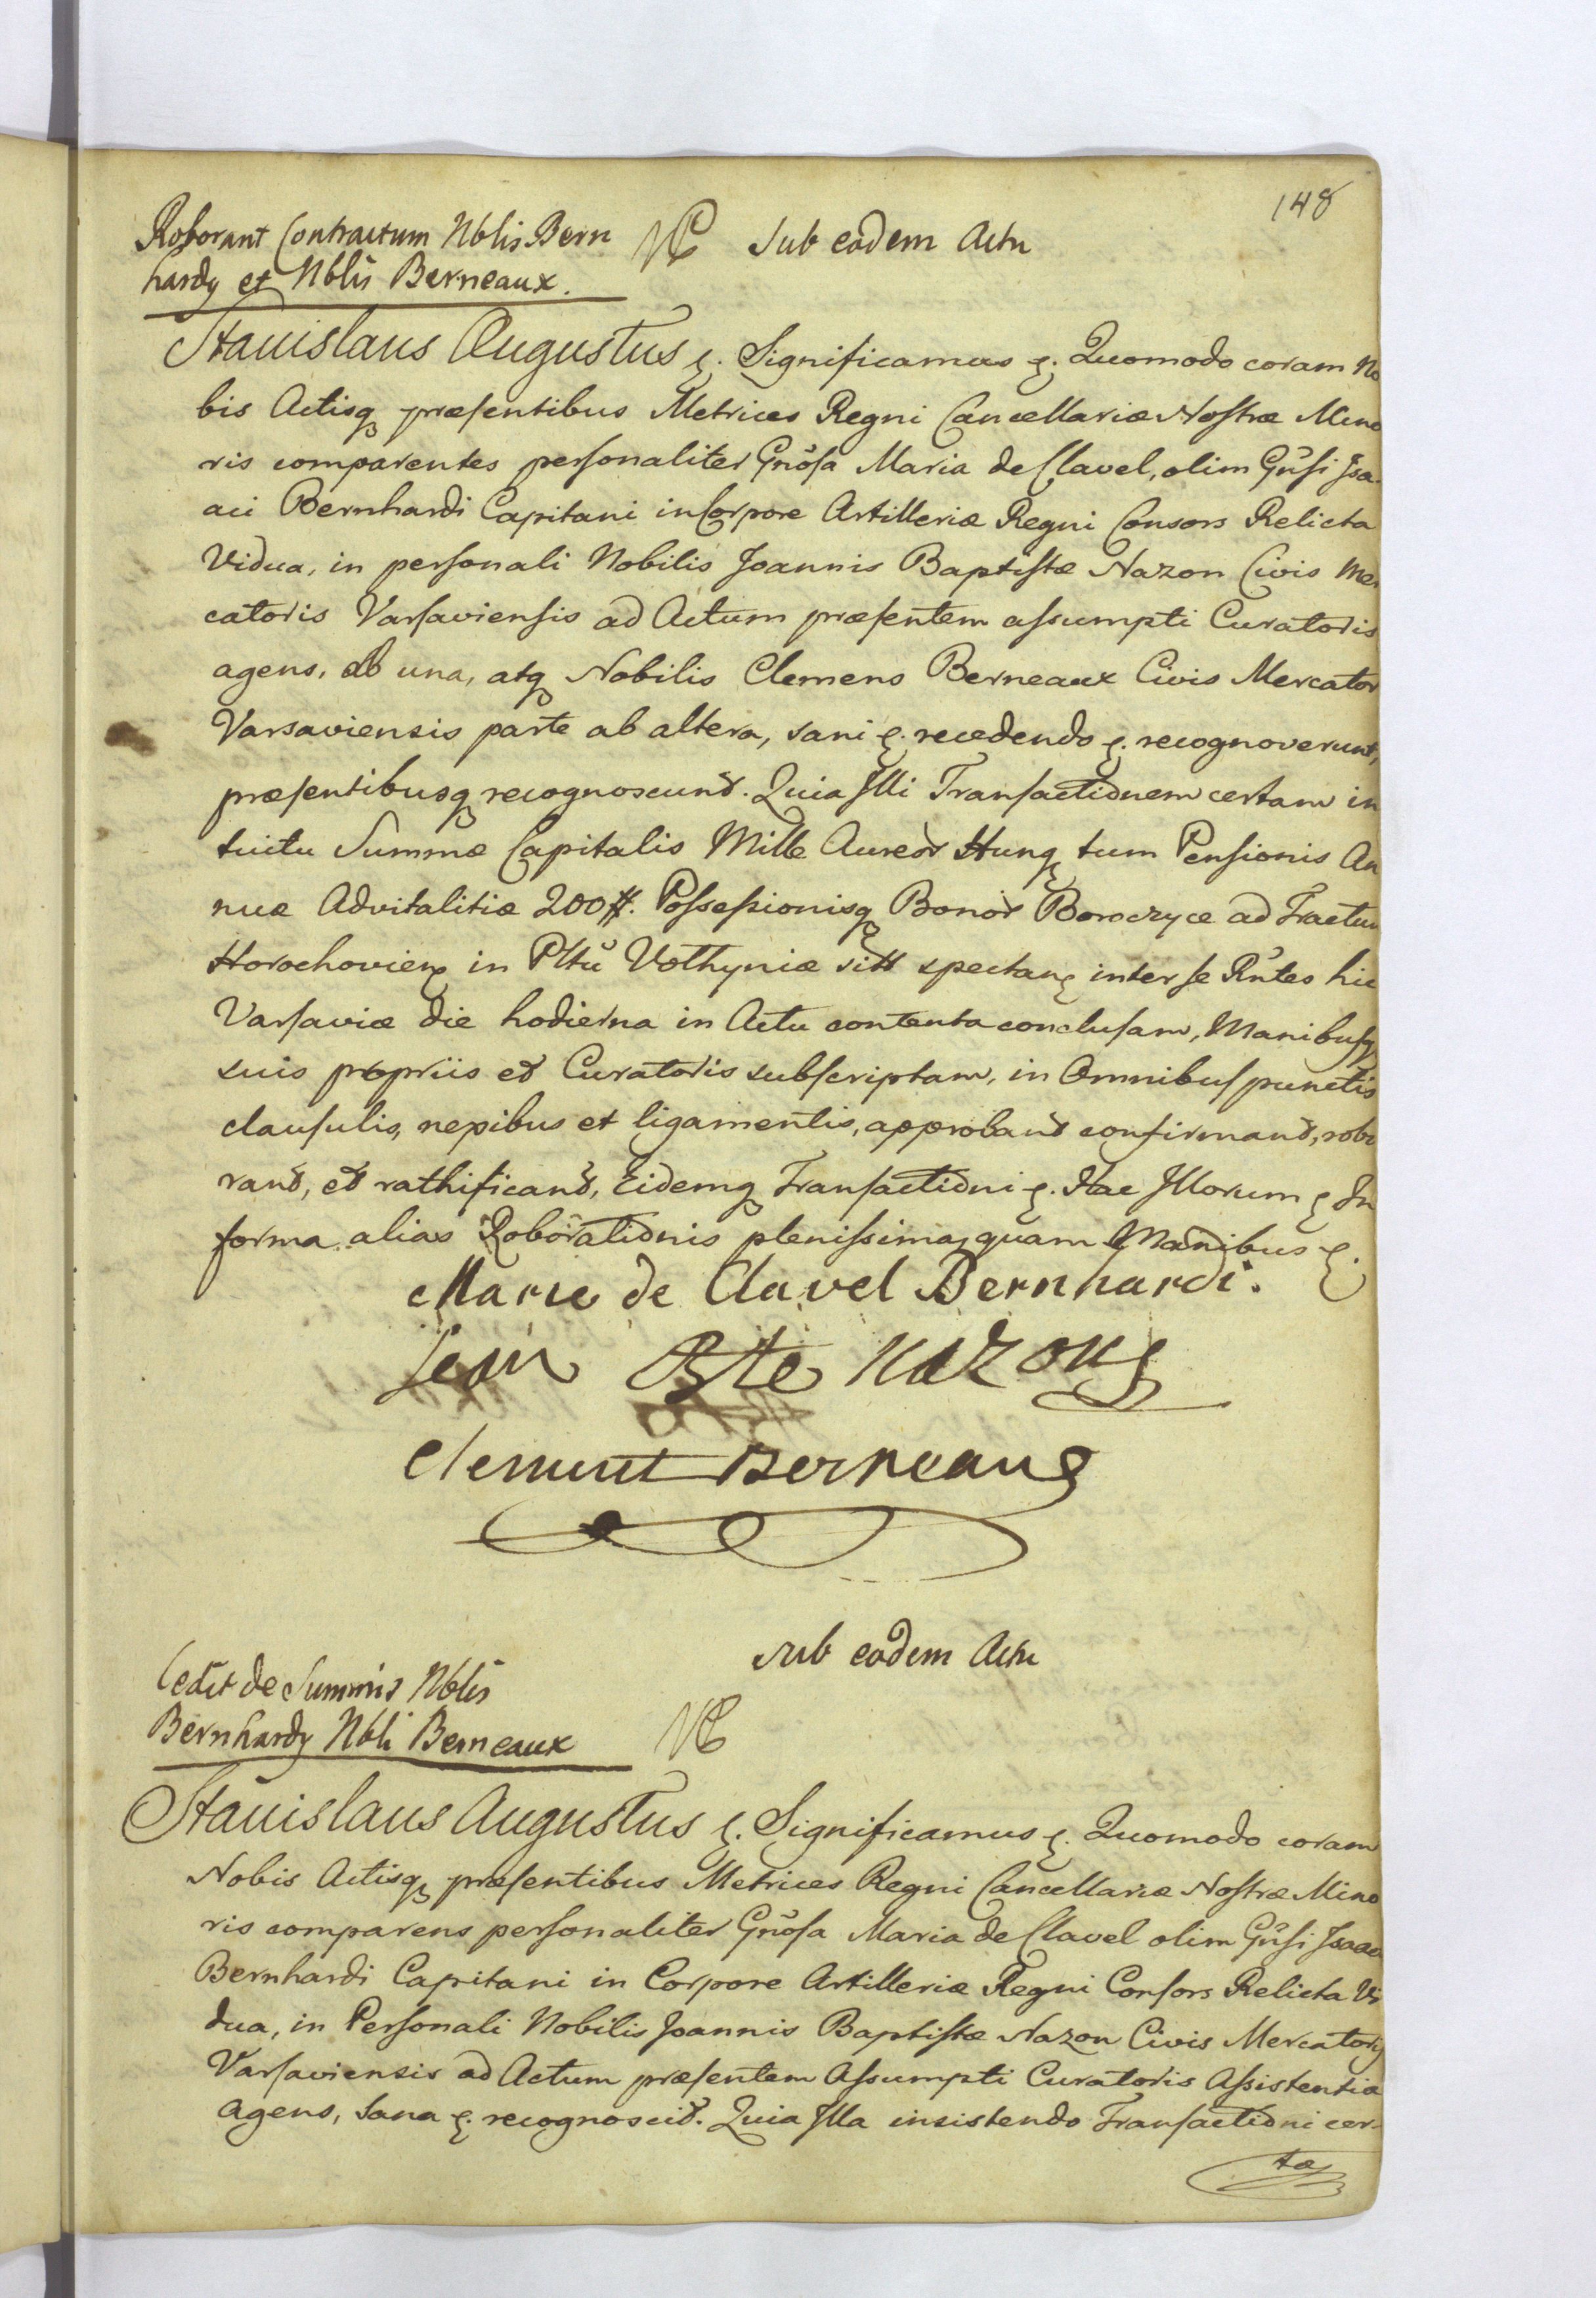 148
Roborant Contractum Nblis Bern
hardy et Nblis Berneaux.
Sub eodem Actu
Stanislaus Augustus &. Significamus &. Quomodo coram No
bis Actisq præsentibus Metrices Regni Cancellariæ Nostræ Mino
ris comparentes personaliter Gnosa Maria de Clavel, olim Gnsi Isa
aci Bernhardi Capitani in Corpore Artilleriæ Regni Consors Relicta
Vidua, in personali Nobilis Joannis Baptistæ Nazon Civis Mer
catoris Varsaviensis ad Actum præsentem assumpti Curatoris
agens, ab una, atq Nobilis Clemens Berneaux Civis Mercator
Varsaviensis parte ab altera, sani &. recedendo &. recognoverunt,
præsentibusq recognoscunt. Quia Illi Transactionem certam in
tuitu Summæ Capitalis Mille Aureor Hung tum Pensionis An
nuæ Advitalitiæ 200 #. Possessionisq Bonor Boroczyce ad Tractum
Horochovien in Pltu Volhyniæ sitt spectan inter se Rntes hic
Varsaviæ die hodierna in Actu contenta conclusam, Manibusq
suis propriis et Curatoris subscriptam, in Omnibus punctis
clausulis, nexibus et ligamentis, approbant confirmant, robo
rant, et rathificant, Eidemq Transactioni &. Hac Illorum & In
forma alias Roborationis plenissima, quam Manibus &.
Marie de Clavel Bernhardi.
Jean Bte Nazon
Clement Berneaux
Sub eodem Actu
Cedit de Summis Nblis
Bernhardy Nbli Berneaux
Stanislaus Augustus &. Significamus &. Quomodo coram
Nobis Actisq præsentibus Metrices Regni Cancellariæ Nostræ Mino
ris comparens personaliter Gnosa Maria de Clavel olim Gnsi Isaaci
Bernhardi Capitani in Corpore Artilleriæ Regni Consors Relicta Vi
dua, in Personali Nobilis Joannis Baptistæ Nazon Civis Mercatoris
Varsaviensis ad Actum præsentem Assumpti Curatoris Assistentia
agens, Sana &. recognoscit. Quia Illa insistendo Transactioni cer-
tæ